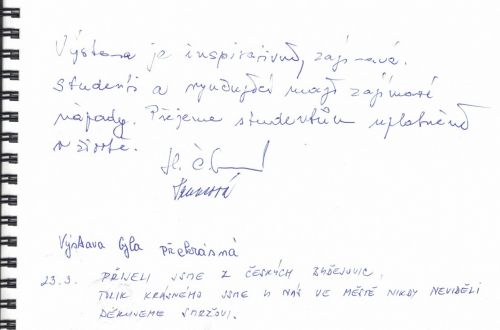 Výstava je inspirativní, zajímavá.
Studenti a vyučující mají zajímavé
nápady. Přejeme studentům uplatnění
v životě.
Výstava byla překrásná
23.3. PŘIJELI JSME Z ČESKÝCH BUDĚJOVIC.
TOLIK KRÁSNÉHO JSME U NÁS VE MĚSTĚ NIKDY NEVIDĚLI
DĚKUJEME